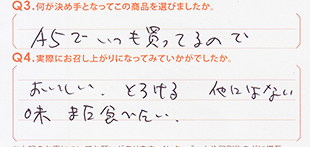 Q3.何が決め手となってこの商品を選びましたか。
A5でいつも買ってるので
Q4.実際にお召し上がりになってみていかがでしたか。
おいしい. とろける 他にはない
味 また食べたい.